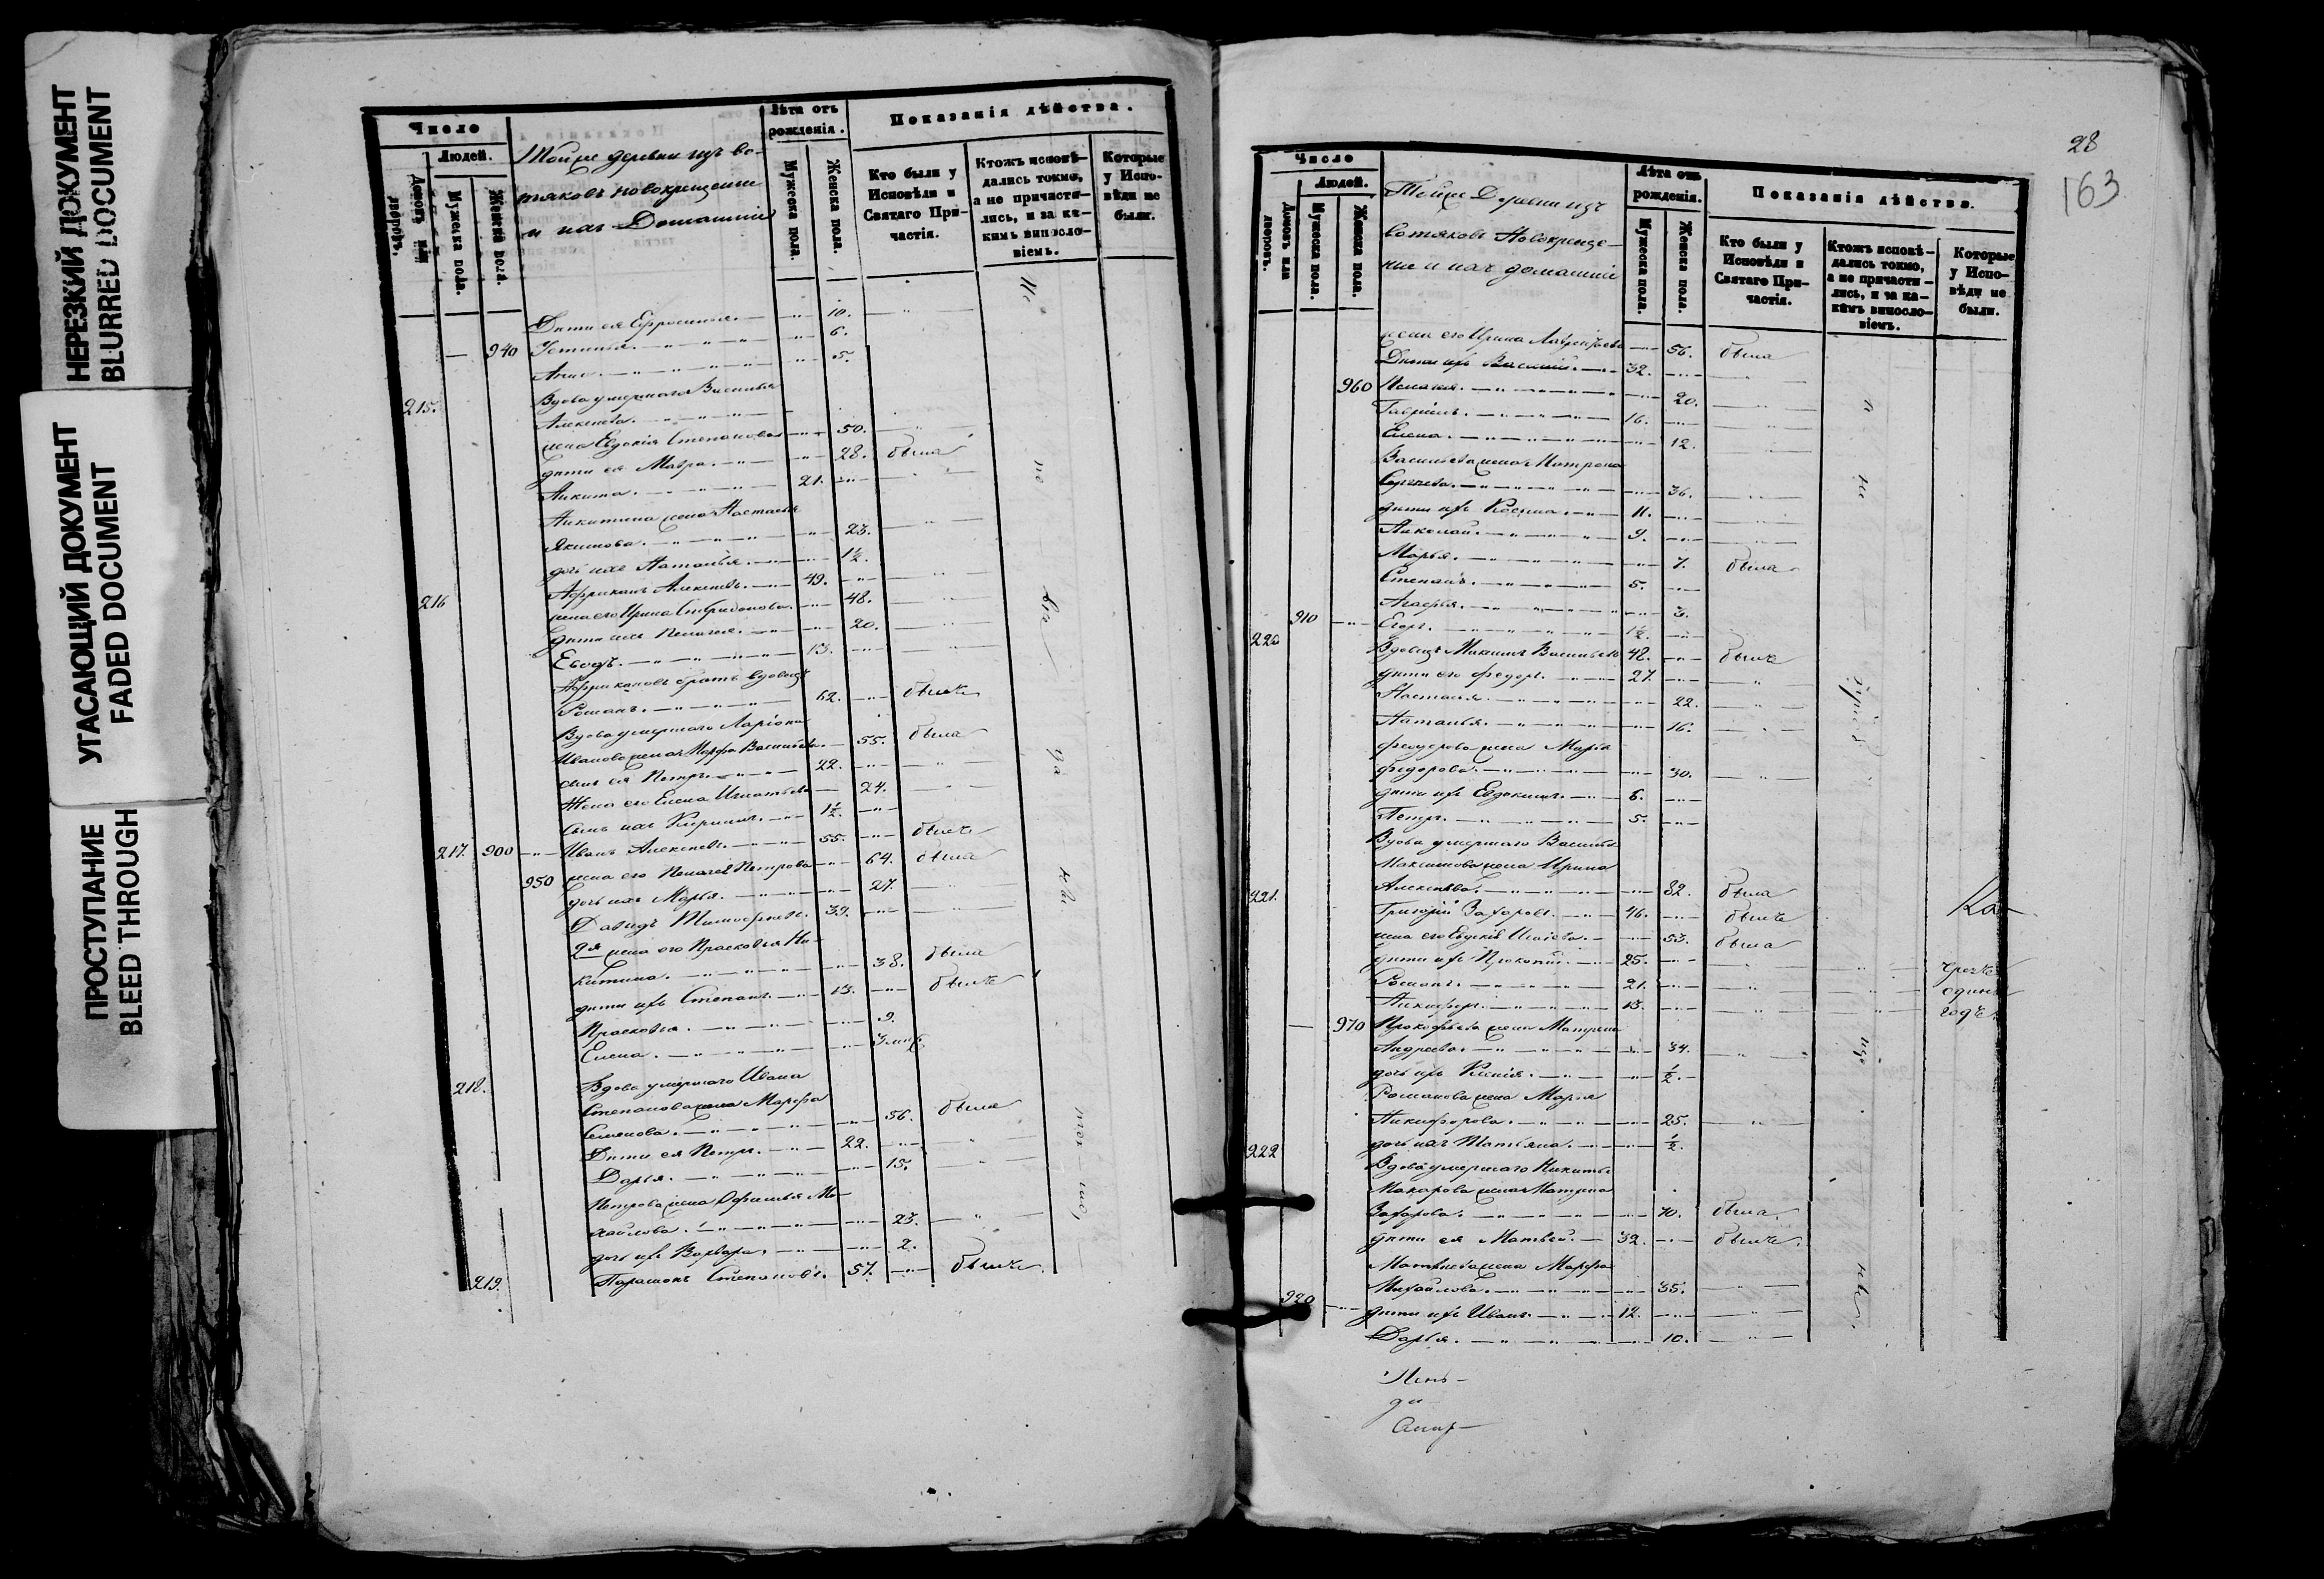 НЕРЕЗКИЙ ДОКУМЕНТ
BLURRED DOCUMENT
УГАСАЮЩИЙ ДОКУМЕНТ
FADED DOCUMENT
ПРОСТУПАНИЕ
BLEED THROUGH
Число
Людей.
Домовъ или дворовъ.
Мужеска пола.
Женска пола.
Тойже деревни изъ во-
тяковъ новокрещенни
и ихъ Домашніе
Лѣта отъ рожденія.
Мужеска пола.
Женска пола.
Показанія дѣйства.
Кто были у Исповѣди и Святаго Причастія.
Ктожъ исповѣ-
дались токмо,
а не причасти-
лись, и за ка-
кимъ винословіемъ.
Которые у Испо-
вѣди не были.
Дѣти ея Ефросинья. 10.
940 Устинья. 6.
Анна 5.
215. Вдова умершаго Василья
Алексѣева.
жена Евдокія Степанова 50.
дѣти ея Мавра. 28. была
Никита. 21.
Никитина жена Настасья
Якимова. 23.
дочь ихъ Наталья. 1½.
216 Африканъ Алексѣевъ. 49.
жена его Ирина Спиридонова. 48.
дѣти ихъ Пелагея. 20.
13.
Африкановъ братъ вдовецъ
Романъ. 62. былъ
Вдова умершаго Ларіона
Иванова жена Марфа Васильева. 55. была
сынъ ея Петръ. 22.
Жена его Елена Игнатьева 24.
сынъ ихъ 1½.
217. 900 Иванъ Алексѣевъ. 55. былъ
950 жена его Пелагея Петрова 64. была
дочь ихъ Марья. 27.
Давидъ Тимофѣевъ. 39.
2я жена его Прасковья Ни-
китина. 38. была
дѣти ихъ Степанъ. 13. былъ
Прасковья. 9.
Елена. 3
218. Вдова умершаго Ивана
Степанова жена Марфа
Семенова. 56. была
Дѣти ея Петръ. 22.
Дарья. 15.
Петрова жена Офимья Ми-
хайлова. 23.
дочь ихъ Варвара. 2.
219. Парамонъ Степановъ. 57. былъ
28
163
Число
Людей.
Домовъ или дворовъ.
Мужеска пола.
Женска пола.
Тойже Деревни изъ
вотяковъ Новокреще-
ные и ихъ домашніе
Лѣта отъ рожденія.
Мужеска пола.
Женска пола.
Показанія дѣйства.
Кто были у Исповѣди и Святаго Причастія.
Ктожъ исповѣ-
дались токмо,
а не причасти-
лись, и за ка-
кимъ винословіемъ.
Которые у Испо-
вѣди не были.
жена его Ирина Лаврентьева 56. была
Дѣти ихъ Василій. 32.
960 Пелагея. 20.
Гавріилъ. 16.
Елена. 12.
Васильева жена Матрона
Сергѣева. 36.
дѣти ихъ Косьма. 11.
Николай. 9.
Марья. 7. была
Степанъ. 5.
Агафья. 3.
910 Егоръ. 1½.
220 Вдовецъ Максимъ Васильевъ 48. былъ
дѣти его Федоръ. 27.
Настасья. 22.
Наталья. 16.
Федорова жена Марія
Федорова. 30.
дѣти ихъ Евдокимъ. 6.
Петръ. 5.
Вдова умершаго Василья
Максимова жена Ирина
221. Алексѣева. 82. была
Григорій Захаровъ. 46. былъ
жена его Евдокія 53. была
дѣти ихъ Прокопій. 25.
Романъ. 21.
Никифоръ. 13.
одинъ
годъ.
970 Прокофьева жена Матрена
Андреева. 34.
дочь ихъ Ксенія. ½.
Романова жена Марья
Никифорова. 25.
222 дочь ихъ Татьяна. ½.
Вдова умершаго Никиты
Макарова жена Матрена
Захарова. 70. была
дѣти ея Матвей. 32. былъ.
Матвѣева жена Марфа
Михайлова. 35.
920 дѣти ихъ Иванъ. 12.
Дарья. 10.